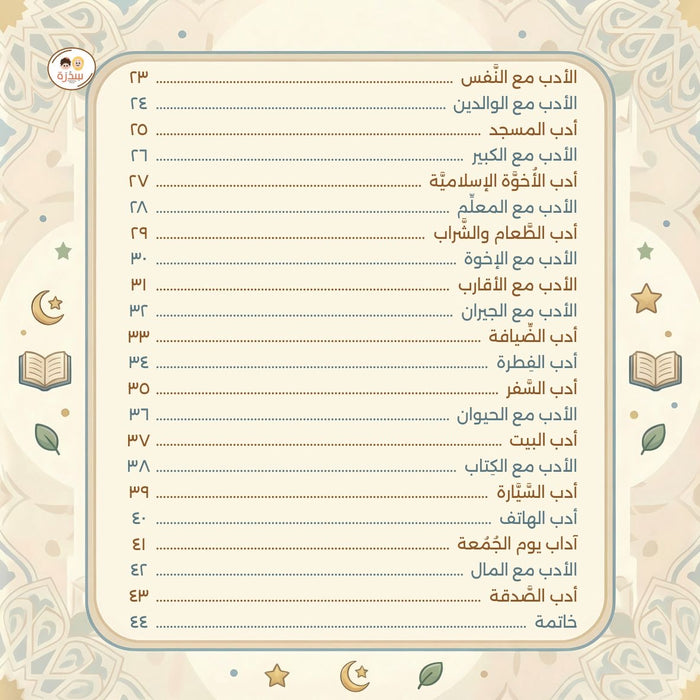 سِدْرَة
الأدب مع النَّفس ........ ٢٣
الأدب مع الوالدين ........ ٢٤
أدب المسجد ........ ٢٥
الأدب مع الكبير ........ ٢٦
أدب الأُخوَّة الإسلاميَّة ........ ٢٧
الأدب مع المعلِّم ........ ٢٨
أدب الطَّعام والشَّراب ........ ٢٩
الأدب مع الإخوة ........ ٣٠
الأدب مع الأقارب ........ ٣١
الأدب مع الجيران ........ ٣٢
أدب الضِّيافة ........ ٣٣
أدب الفِطرة ........ ٣٤
أدب السَّفر ........ ٣٥
الأدب مع الحيوان ........ ٣٦
أدب البيت ........ ٣٧
الأدب مع الكِتاب ........ ٣٨
أدب السَّيَّارة ........ ٣٩
أدب الهاتف ........ ٤٠
آداب يوم الجُمُعة ........ ٤١
الأدب مع المال ........ ٤٢
أدب الصَّدقة ........ ٤٣
خاتمة ........ ٤٤